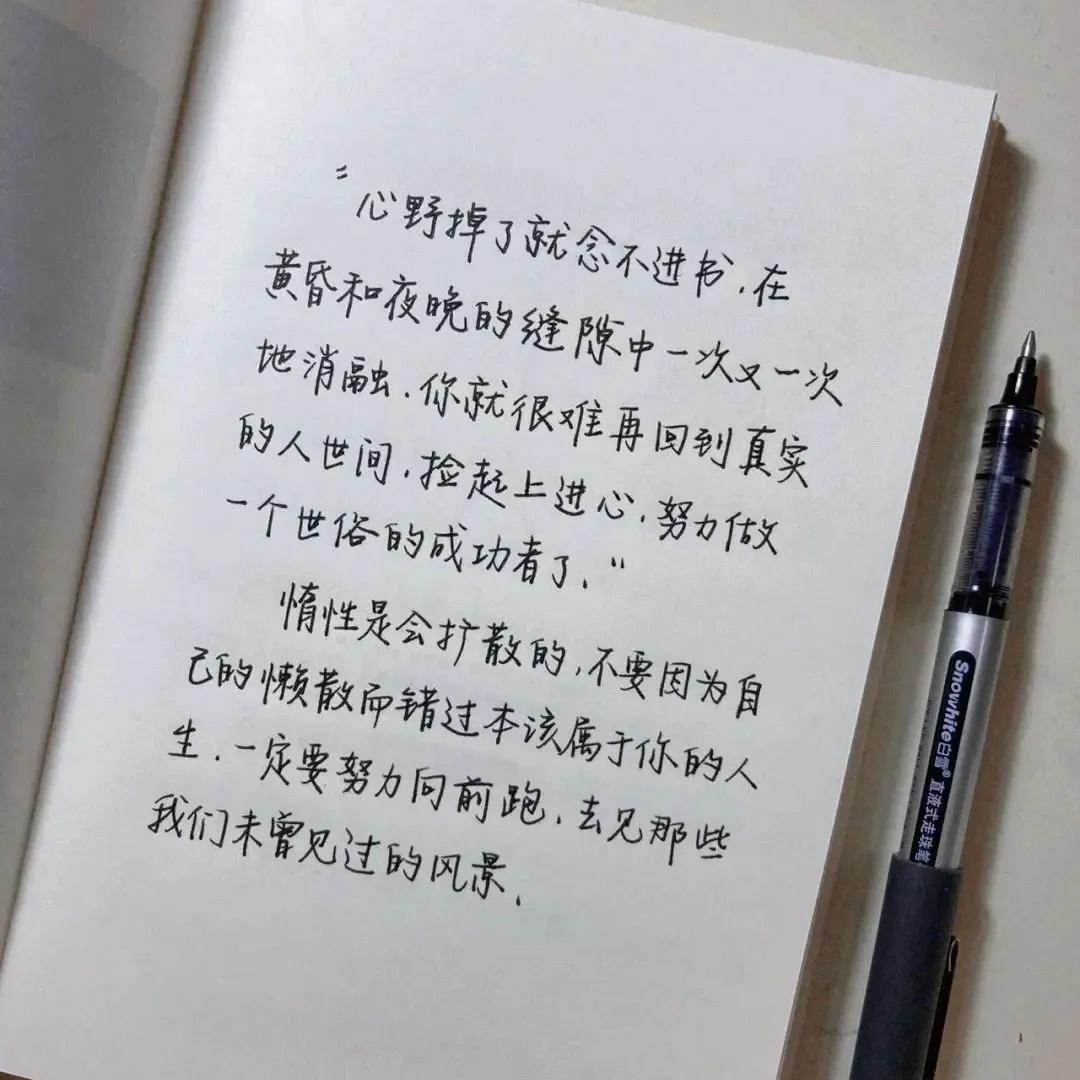 “心野掉了就念不进书，在
黄昏和夜晚的缝隙中一次又一次
地消融．你就很难再回到真实
的人世间，捡起上进心，努力做
一个世俗的成功者了．”
惰性是会扩散的，不要因为自
己的懒散而错过本该属于你的人
生．一定要努力向前跑，去见那些
我们未曾见过的风景．
Snowhite白雪® 直液式走珠笔